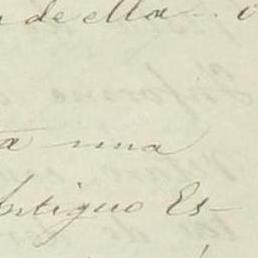 de ella
una
Antiguo Es-